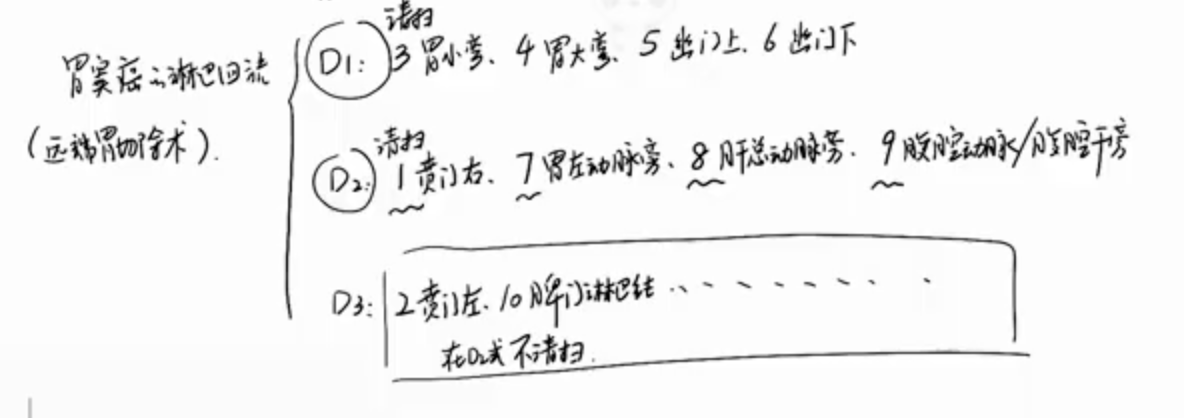 胃窦癌之淋巴回流
(远端胃切除术).
清扫
D1: 3 胃小弯、4 胃大弯、5 幽门上、6 幽门下
清扫
D2: 1 贲门右、7 胃左动脉旁、8 肝总动脉旁、9 腹腔动脉/腹腔干旁
D3: 2 贲门左、10 脾门淋巴结 ........
在D2式不清扫.